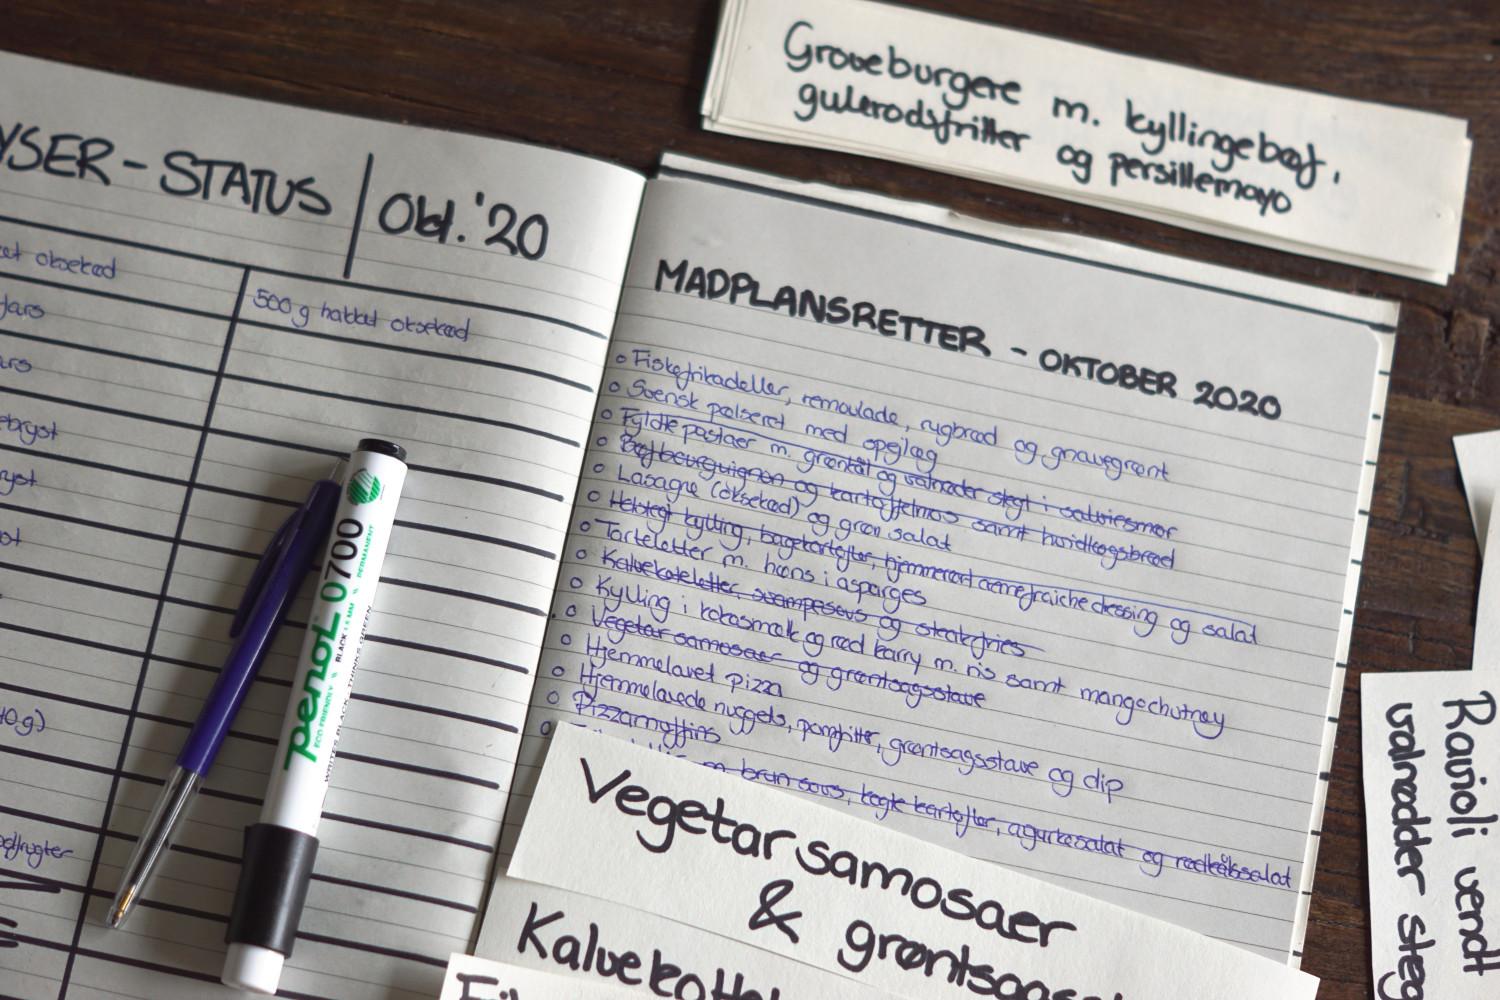 YSER - STATUS | Okt. '20
oksekød
500 g hakket oksekød
fars
ebryst
ryst
40 g)
Penol 0700
ECO FRIENDLY
BLACK 1.5 MM
PERMANENT
MADPLANSRETTER - OKTOBER 2020
o Fiskefrikadeller, remoulade, rugbrød og gnavegrønt
o Svensk pølseret med spejlæg
o Fyldte pastaer m. grønkål og valnødder stegt i salviesmør
o Bøf bourguignon og kartoffelmos samt hvidløgsbrød
o Lasagne (oksekød) og grøn salat
o Helstegt kylling, bagekartofler, hjemmerørt cremefraichedressing og salat
o Tarteletter m. høns i asparges
o Kalvekoteletter, svampesovs og steakfries
o Kylling i kokosmælk og rød karry m. ris samt mangochutney
o Vegetar samosaer og grøntsagsstave
o Hjemmelavet pizza
o Hjemmelavede nuggets, pomfritter, grøntsagsstave og dip
o Pizzamuffins
m. brun sovs, kogte kartofler, agurkesalat og rødkålssalat
Groveburgere m. kyllingebøf,
gulerodsfritter og persillemayo
Vegetar samosaer
& grøntsags
Kalvekotel
Ravioli vendt
valnødder steg